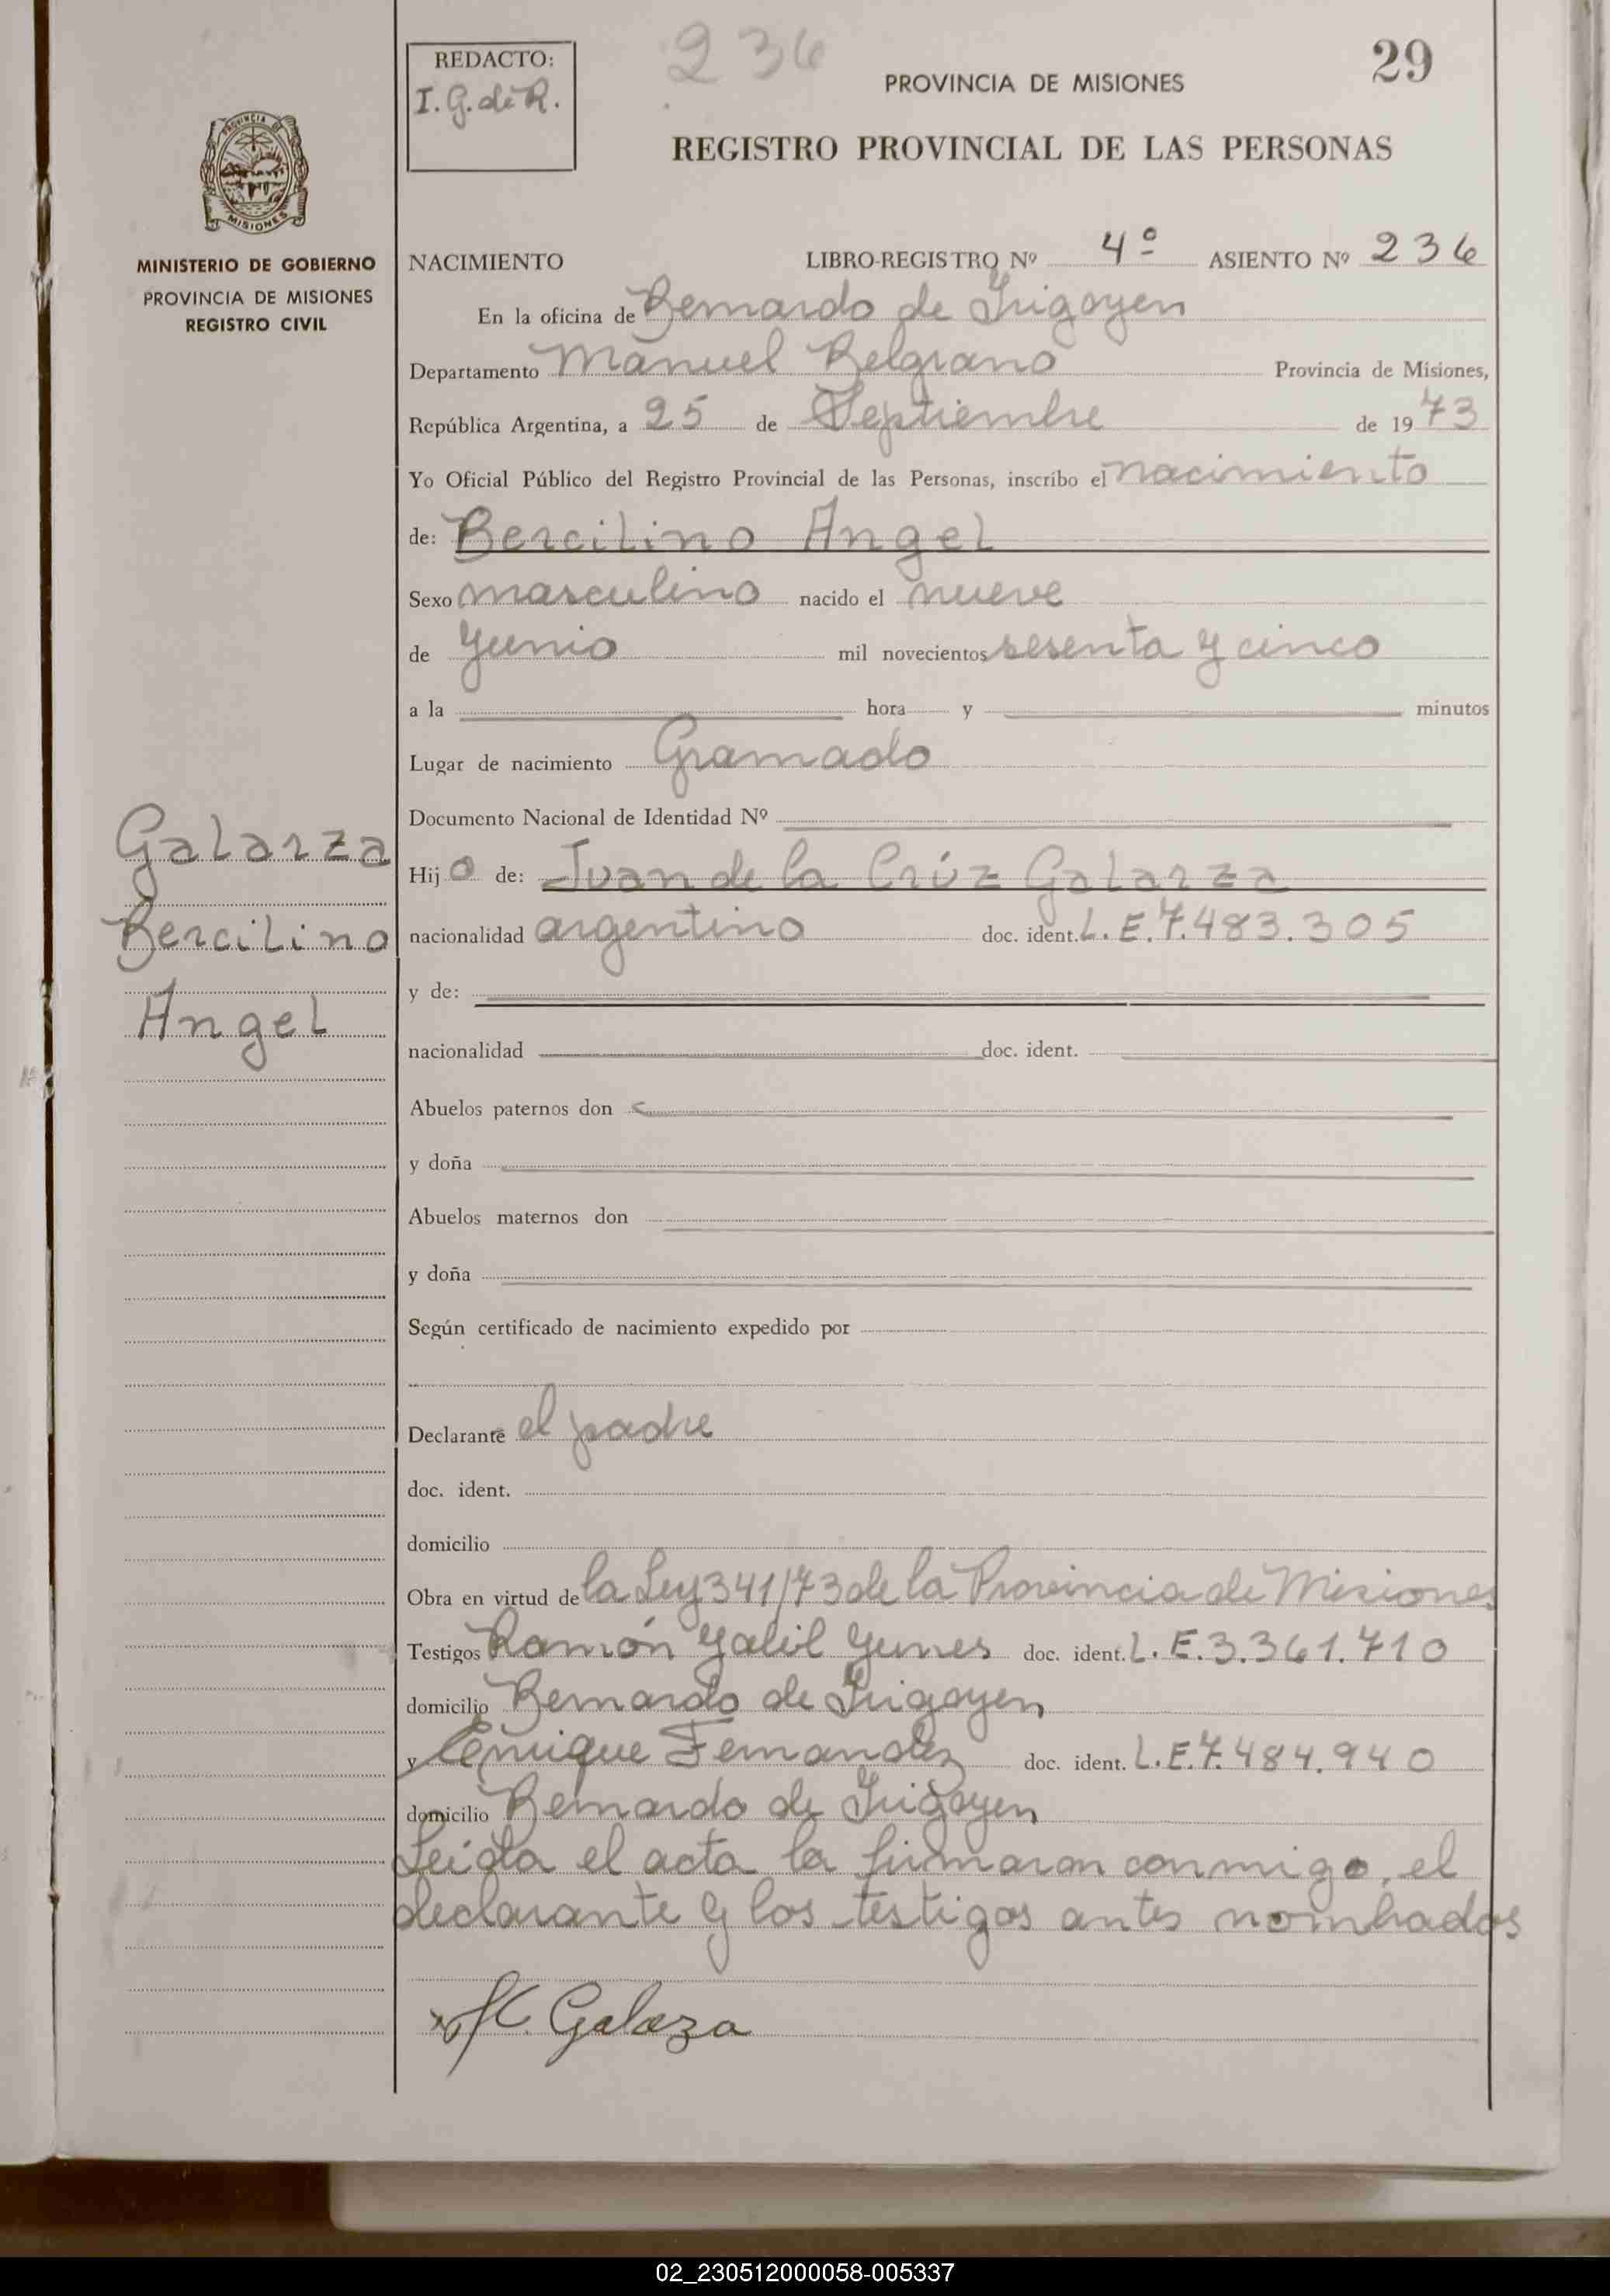 REDACTO:
I. G. de R.
236
29
PROVINCIA DE MISIONES
REGISTRO PROVINCIAL DE LAS PERSONAS
PROVINCIA DE
MISIONES
MINISTERIO DE GOBIERNO
PROVINCIA DE MISIONES
REGISTRO CIVIL
NACIMIENTO LIBRO-REGISTRO Nº 4º ASIENTO Nº 236
En la oficina de Bernardo de Irigoyen
Departamento Manuel Belgrano Provincia de Misiones,
República Argentina, a 25 de Septiembre de 1973
Yo Oficial Público del Registro Provincial de las Personas, inscribo el nacimiento
de: Bercilino Angel
Sexo masculino nacido el nueve
de Junio mil novecientos sesenta y cinco
a la hora y minutos
Lugar de nacimiento Gramado
Documento Nacional de Identidad Nº
Galarza
Bercilino
Angel
Hijo de: Juan de la Crúz Galarza
nacionalidad argentino doc. ident. L.E.7.483.305
y de:
nacionalidad doc. ident.
Abuelos paternos don
y doña
Abuelos maternos don
y doña
Según certificado de nacimiento expedido por
Declarante el padre
doc. ident.
domicilio
Obra en virtud de la Ley 341/73 de la Provincia de Misiones
Testigos Ramón Yalil Yunes doc. ident. L.E.3.361.710
domicilio Bernardo de Irigoyen
y Enrique Fernandez doc. ident. L.E.7.484.940
domicilio Bernardo de Irigoyen
Leída el acta la firmaron conmigo, el
declarante y los testigos antes nombrados
Galarza
02_230512000058-005337